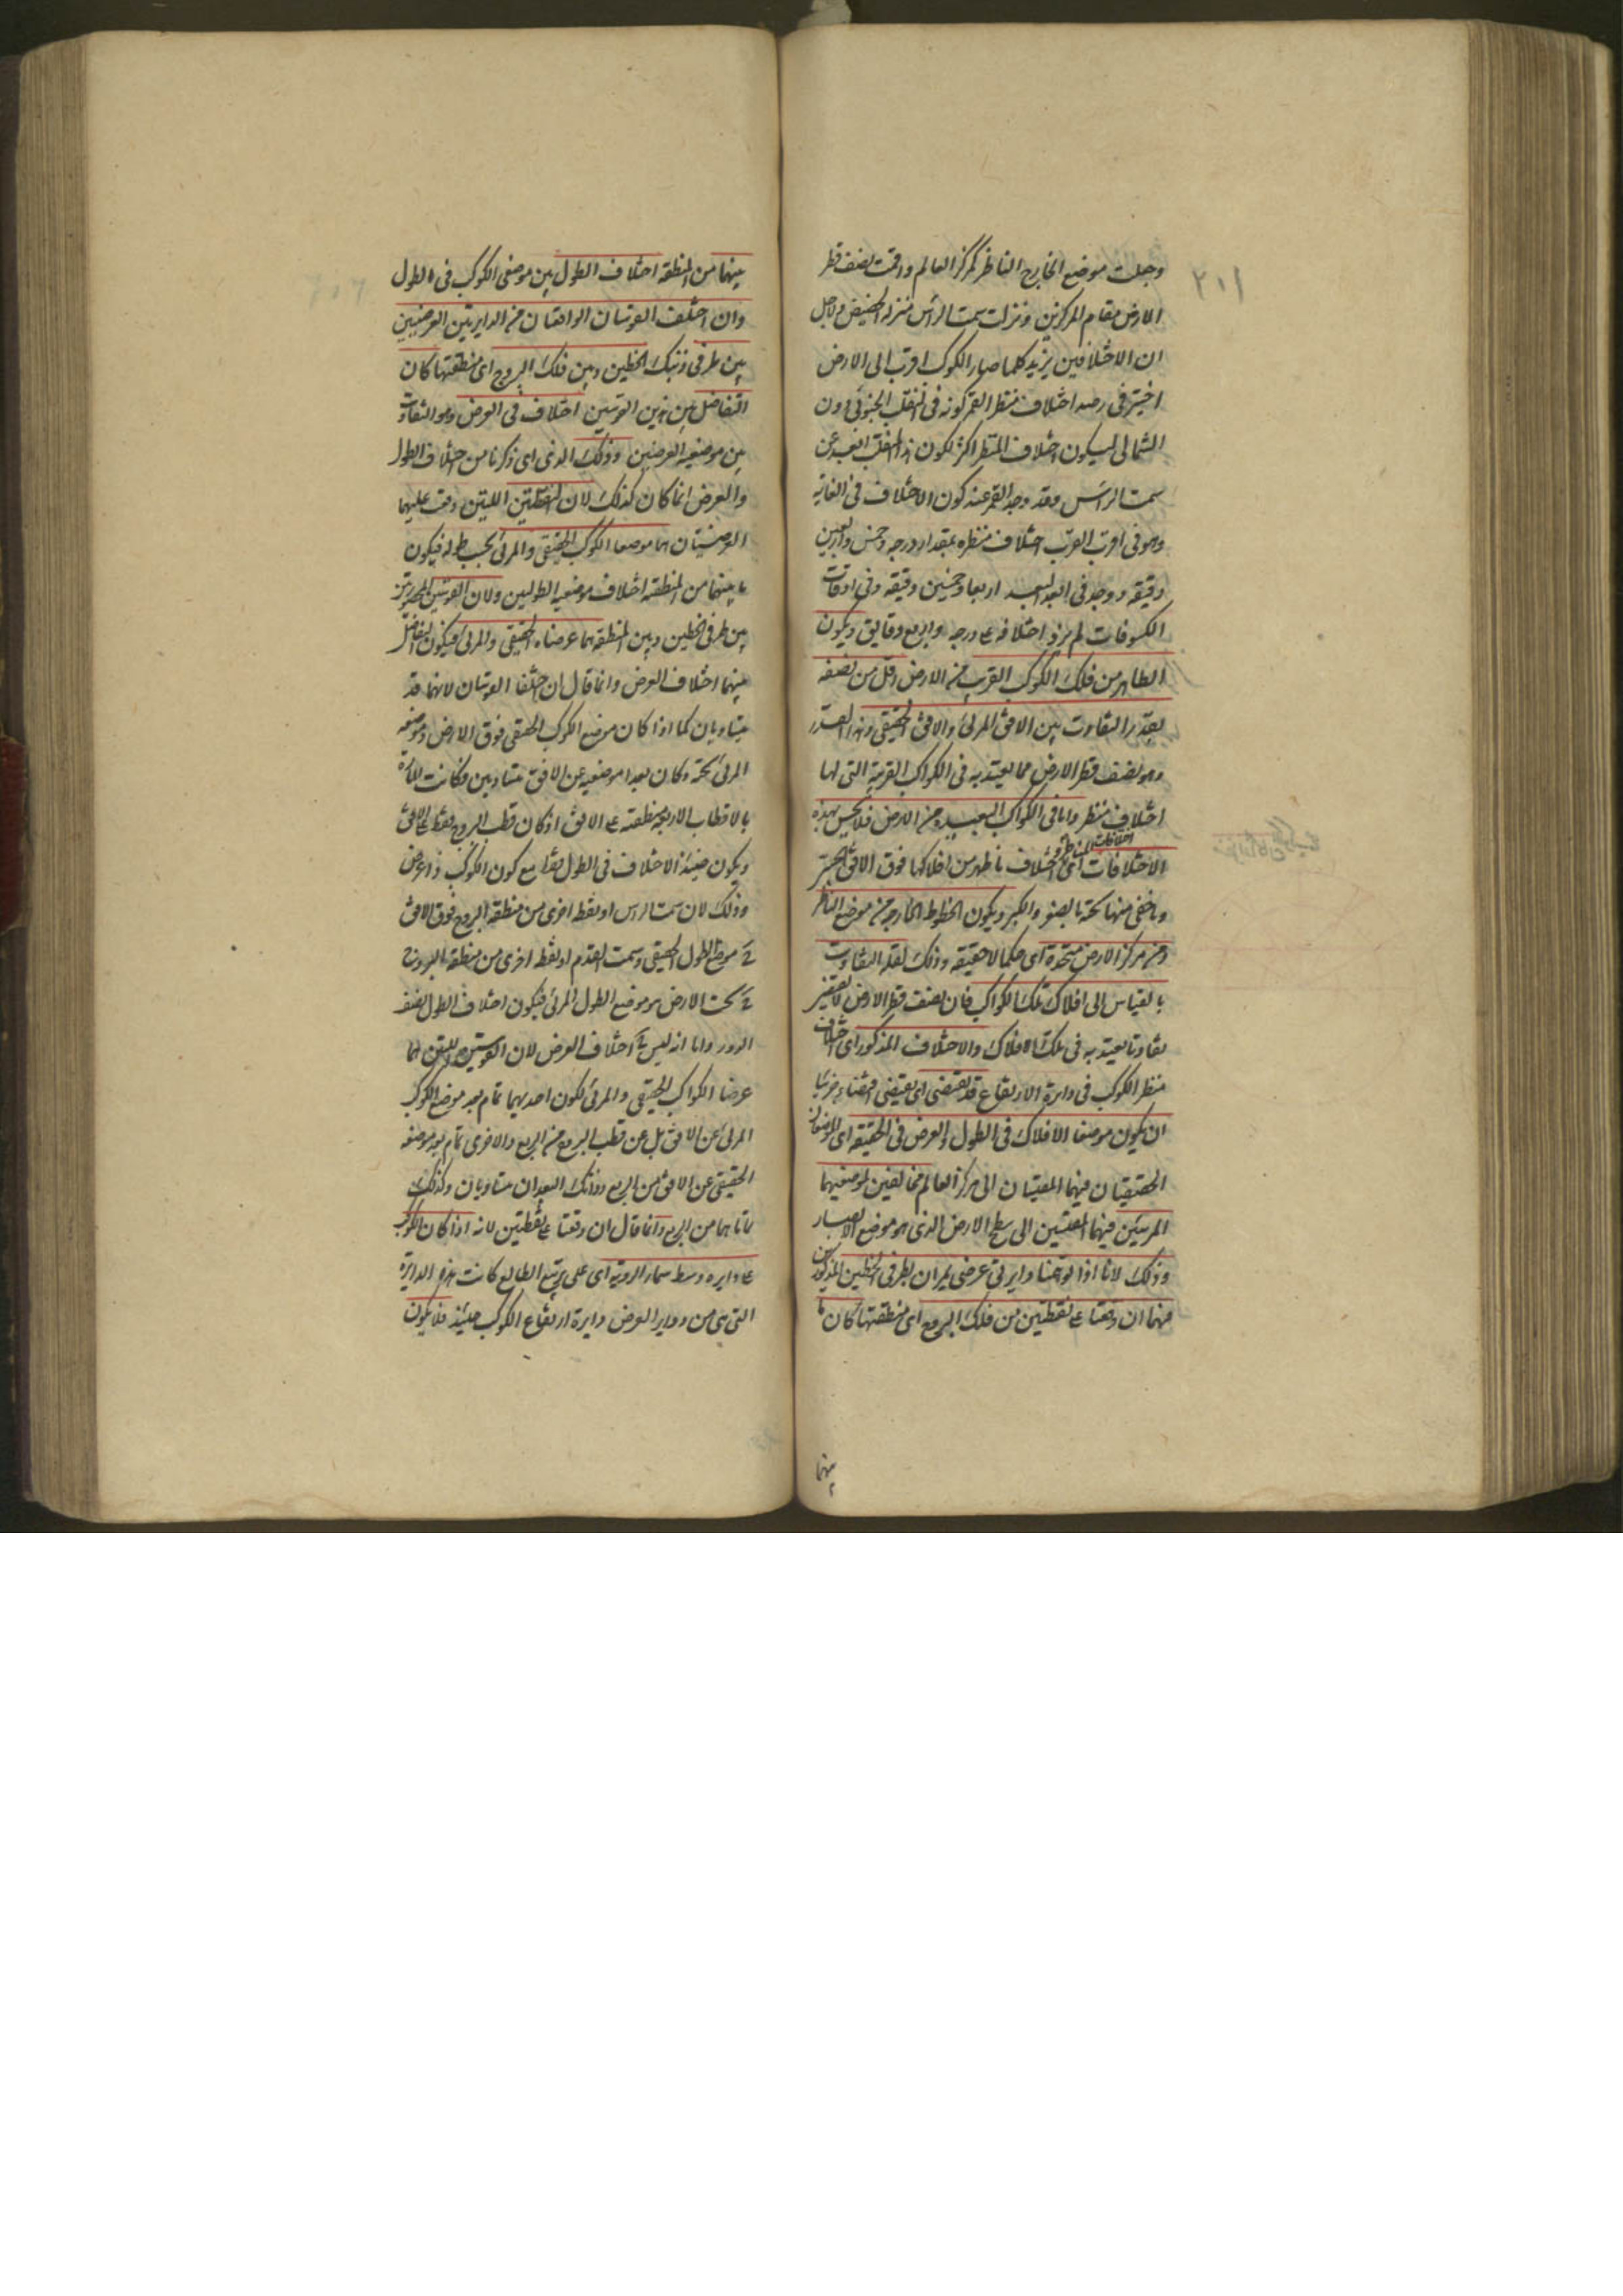 وجعلت موضع الخارج الناظر كمركز العالم واقمت نصف قطر
الارض مقام المركزين ونزلت سمت الراس منزلة الحضيض ولاجل
ان الاختلافين يزيد كلما صار الكوكب اقرب الى الارض
اختير في رصد اختلاف منظر القمر كونه في المنقلب الجنوبي دون
الشمالي ليكون اختلاف المنظر اكثر لكون هذا المنقلب ابعد عن
سمت الراس وقد وجد القمر عند كون الاختلاف في الغاية
وهو في اقرب القرب اختلاف منظره بمقدار درجة وخمس واربعين
دقيقة ووجد في ابعد البعد اربعا وخمسين دقيقة وفي اوقات
الكسوفات لم يزد اختلافه على درجة واربع دقايق ويكون
الظاهر من فلك الكوكب القريب من الارض اقل من نصفه
بقدر التفاوت بين الافق المرئي والافق الحقيقي وهذا القدر
وهو نصف قطر الارض مما يعتد به في الكواكب القريبة التي لها
اختلاف منظر واما في الكواكب البعيدة من الارض فلا يحس بهذه
الاختلافات اي اختلافات المناظر واختلاف ما ظهر من افلاكها فوق الافق الحسي
وما خفي منها تحته بالصغر والكبر ويكون الخطوط الخارجة من موضع الناظر
ومن مركز الارض متحدة اي حكما لا حقيقة وذلك لقلة التفاوت
بالقياس الى افلاك تلك الكواكب فان نصف قطر الارض لا يقتضي
تفاوتا يعتد به في تلك الافلاك والاختلاف المذكور اي اختلاف
منظر الكوكب في دايرة الارتفاع قد يقتضي اي يقتضي اقتضاء جزئيا
ان يكون موضعا الافلاك في الطول والعرض في الحقيقة اي الموضعان
الحقيقيان فيهما المقيسان الى مركز العالم مخالفين لموضعيهما
المرئيين فيهما المقيسين الى سطح الارض الذي هو موضع الابصار
وذلك لانا اذا توهمنا دايرتي عرض يمران بطرفي الخطين المذكورين
منهما ان وقعتا على نقطتين من فلك البروج اي منطقتها كان ما
بينهما
٢٠١
بينهما من المنطقة اختلاف الطول بين موضعي الكوكب في الطول
وان اختلف القوسان الواقعتان من الدايرتين العرضيتين
بين طرفي ذينك الخطين وبين فلك البروج اي منطقتها كان
التفاضل بين هذين القوسين اختلاف في العرض وهو التفاوت
بين موضعيه العرضيين وذلك الذي اي ذكرنا من اختلاف الطول
والعرض انما كان كذلك لان النقطتين اللتين وقعت عليهما
العرضيتان هما موضعا الكوكب الحقيقي والمرئي بحسب طوله فيكون
ما بينهما من المنطقة اختلاف موضعيه الطوليين ولان القوسين المحصورتين
بين طرفي الخطين وبين المنطقة هما عرضاه الحقيقي والمرئي فيكون التفاضل
بينهما اختلاف العرض وانما قال ان اختلفا القوسان لانهما قد
يتساويان كما اذا كان موضع الكوكب الحقيقي فوق الارض وموضعه
المرئي تحته وكان بعدا موضعيه عن الافق متساويين وكانت المارة
بالاقطاب الاربعة منطبقة على الافق اذ كان قطب البروج فقط على الافق
ويكون حينئذ الاختلاف في الطول فقط مع كون الكوكب ذا عرض
وذلك لان سمت الراس او نقط اخرى من منطقة البروج فوق الافق
هي موضع الطول الحقيقي وسمت القدم او نقط اخرى من منطقة البروج
تحت الارض هو موضع الطول المرئي فيكون اختلاف الطول نصف
الدور واما انه ليس له اختلاف العرض لان القوسين اللتين هما
عرضا الكواكب الحقيقي والمرئي لكون احديهما تمام بعد موضع الكوكب
المرئي عن الافق بل عن قطب البروج من الربع والاخرى تمام بعد موضعه
الحقيقي عن الافق من الربع وذانك البعدان متساويان وكذلك
تماماهما من الربع وانما قال ان وقعتا على نقطتين لانه اذا كان الكوكب
على دايره وسط سماء الرؤية اي على تربيع الطالع كانت هذه الدايرة
التي هي من دواير العرض دايرة ارتفاع الكوكب حينئذ فلا يكون